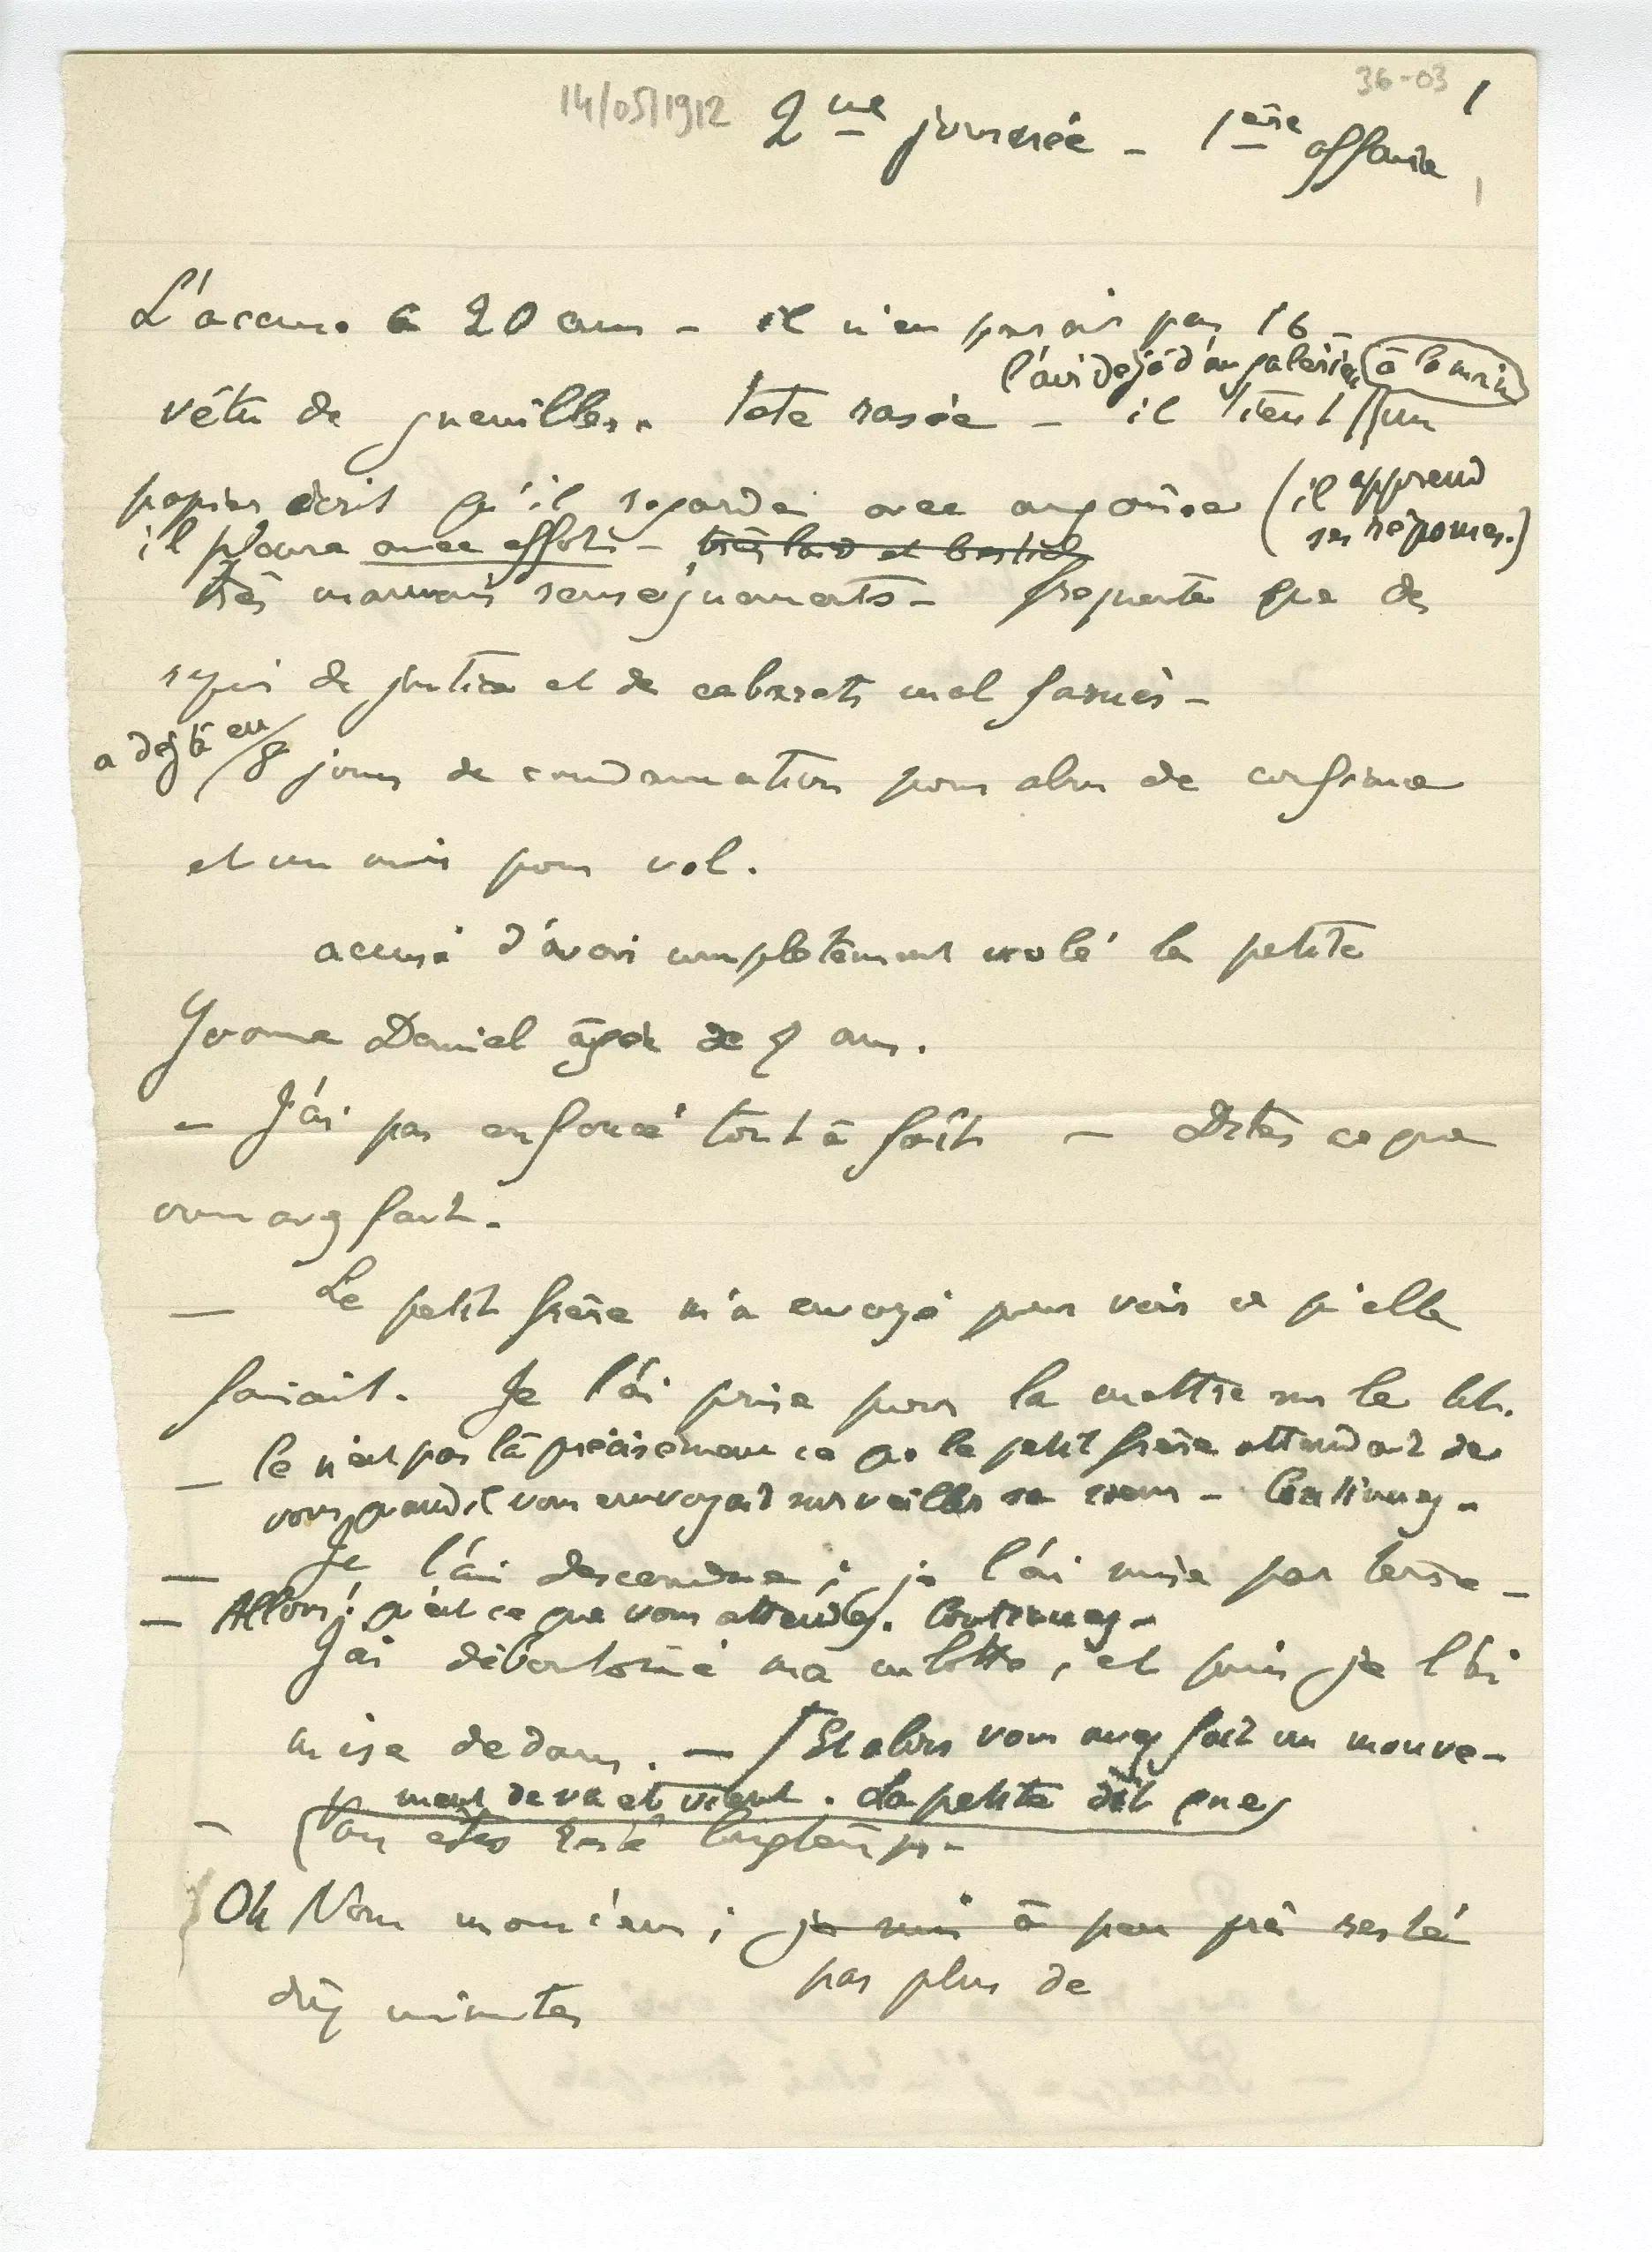 14/05/1912 2me journée - 1ère affaire
36-03 1
1
L'accusé a 20 ans - il n'en parait pas 16 -
l'air déjà d'un galérien à la main
vêtu de guenilles. tete rasée - il tient un
papier écrit qu'il regarde avec angoisse (il apprend
ses réponses.)
il pleure avec effort - très laid et bestial
très mauvais renseignements - frequente que des
repris de justice et de cabarets mal famés -
a déjà eu
8 jours de condamnation pour abus de confiance
et un mois pour vol.
accusé d'avoir complètement violé la petite
Yvonne Daniel agée de 7 ans.
- J'ai pas enfoncé tout à fait - Dites ce que
vous avez fait.
- Le petit frère m'a envoyé pour voir ce qu'elle
faisait. Je l'ai prise pour la mettre sur le lit.
- Ce n'est pas là précisément ce que le petit frère attendait de
vous quand il vous envoyait surveiller sa soeur - Continuez -
- Je l'ai descendue ; je l'ai mise par terre -
- Allons! qu'est ce que vous attendez. Continuez -
J'ai déboutonné ma culotte, et puis je l'ai
mise dedans. - Et alors vous avez fait un mouve-
ment de va et vient. La petite dit que
- vous êtes resté longtemps -
Oh Non monsieur ; je suis à peu près resté
pas plus de
dix minutes